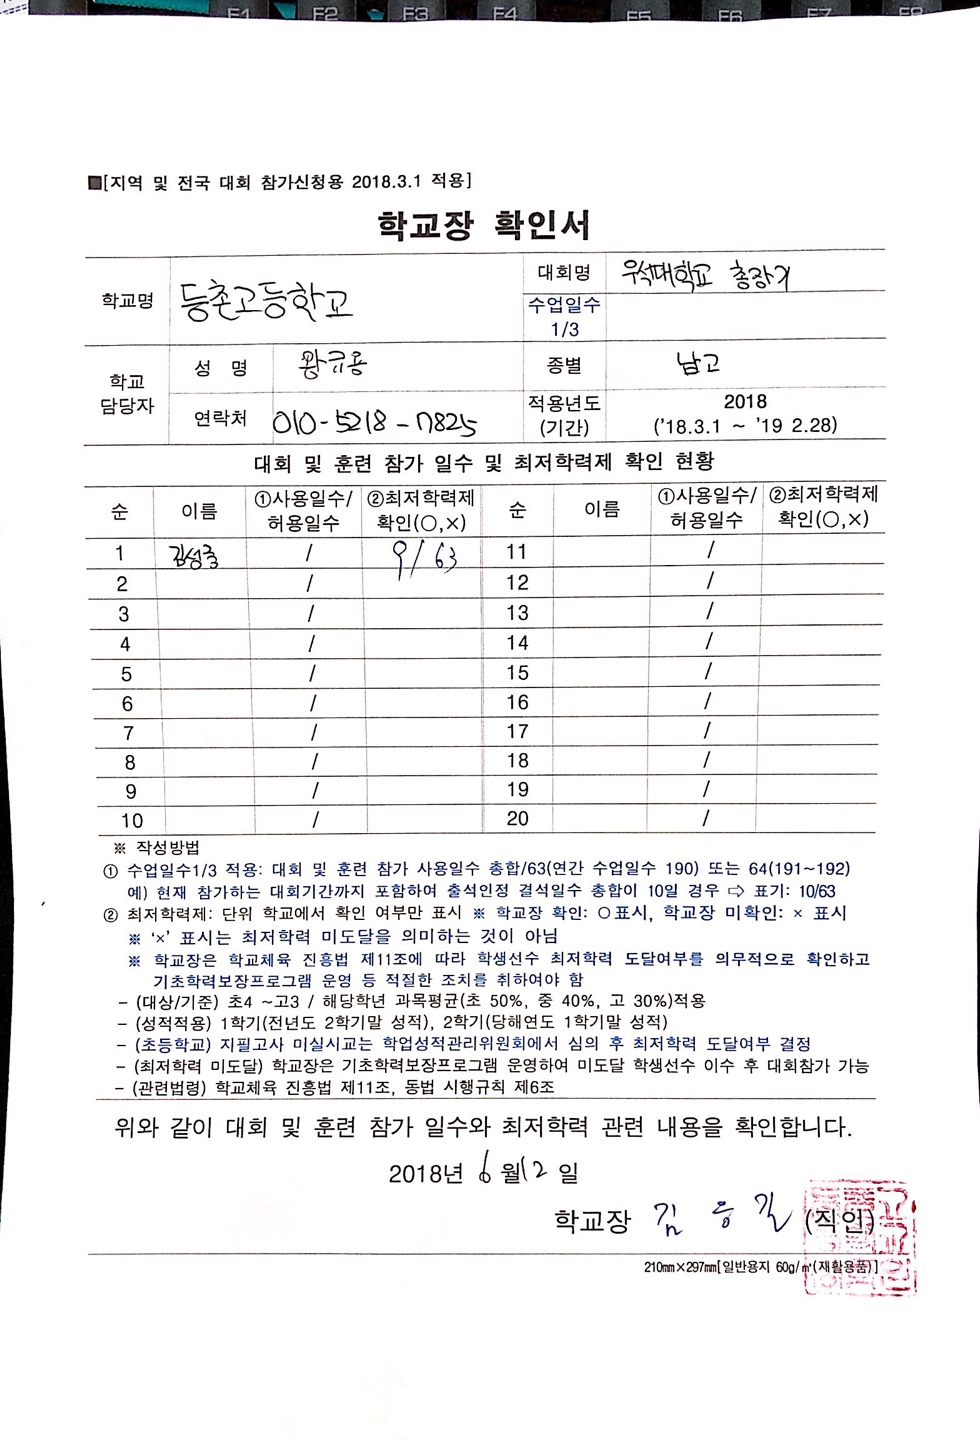 F1 F2 F3 F4 F5 F6 F7 F8
■[지역 및 전국 대회 참가신청용 2018.3.1 적용]
학교장 확인서
학교명 등촌고등학교 대회명 우석대학교 총장기
수업일수 1/3
학교 담당자 성 명 황규용 종별 남고
연락처 010-5218-7825 적용년도 (기간) 2018 ('18.3.1 ~ '19 2.28)
대회 및 훈련 참가 일수 및 최저학력제 확인 현황
순 이름 ①사용일수/허용일수 ②최저학력제 확인(○,×) 순 이름 ①사용일수/허용일수 ②최저학력제 확인(○,×)
1 / 9/63 11 /
2 / 12 /
3 / 13 /
4 / 14 /
5 / 15 /
6 / 16 /
7 / 17 /
8 / 18 /
9 / 19 /
10 / 20 /
※ 작성방법
① 수업일수1/3 적용: 대회 및 훈련 참가 사용일수 총합/63(연간 수업일수 190) 또는 64(191~192)
예) 현재 참가하는 대회기간까지 포함하여 출석인정 결석일수 총합이 10일 경우 ⇨ 표기: 10/63
② 최저학력제: 단위 학교에서 확인 여부만 표시 ※ 학교장 확인: ○표시, 학교장 미확인: × 표시
※ '×' 표시는 최저학력 미도달을 의미하는 것이 아님
※ 학교장은 학교체육 진흥법 제11조에 따라 학생선수 최저학력 도달여부를 의무적으로 확인하고
기초학력보장프로그램 운영 등 적절한 조치를 취하여야 함
- (대상/기준) 초4 ~고3 / 해당학년 과목평균(초 50%, 중 40%, 고 30%)적용
- (성적적용) 1학기(전년도 2학기말 성적), 2학기(당해연도 1학기말 성적)
- (초등학교) 지필고사 미실시교는 학업성적관리위원회에서 심의 후 최저학력 도달여부 결정
- (최저학력 미도달) 학교장은 기초학력보장프로그램 운영하여 미도달 학생선수 이수 후 대회참가 가능
- (관련법령) 학교체육 진흥법 제11조, 동법 시행규칙 제6조
위와 같이 대회 및 훈련 참가 일수와 최저학력 관련 내용을 확인합니다.
2018년 6월 12일
학교장 김 응 길 (직인)
210㎜×297㎜[일반용지 60g/㎡(재활용품)]